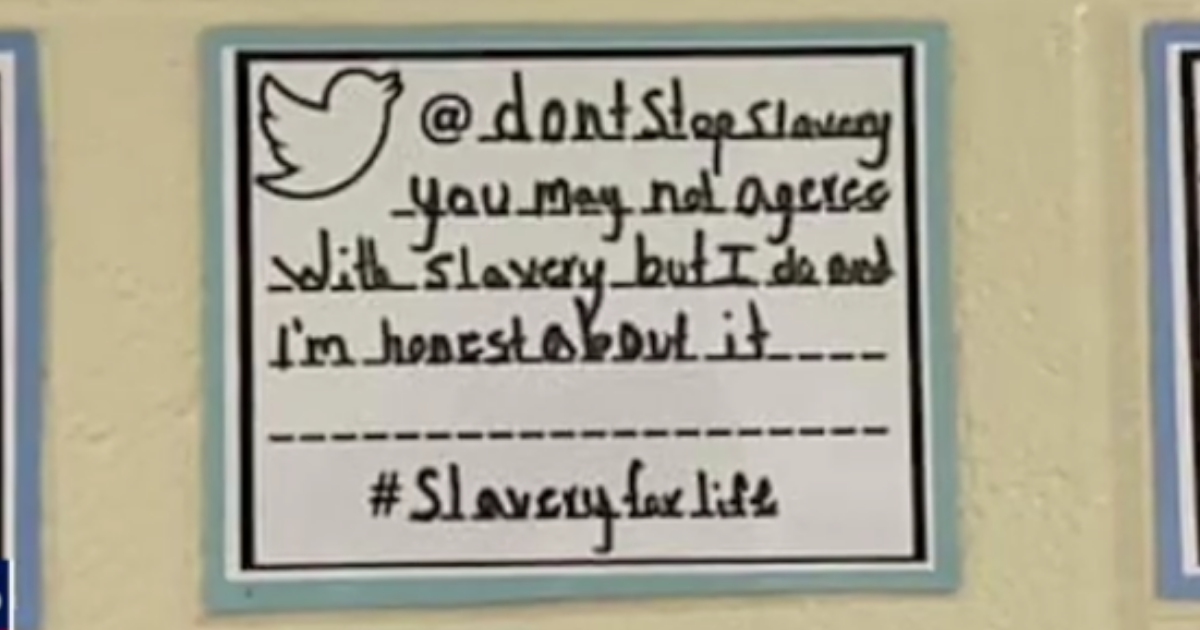 @dontStopSlavery
you may not ageree
with slavery but I do and
I'm honest about it
#Slaveryforlife